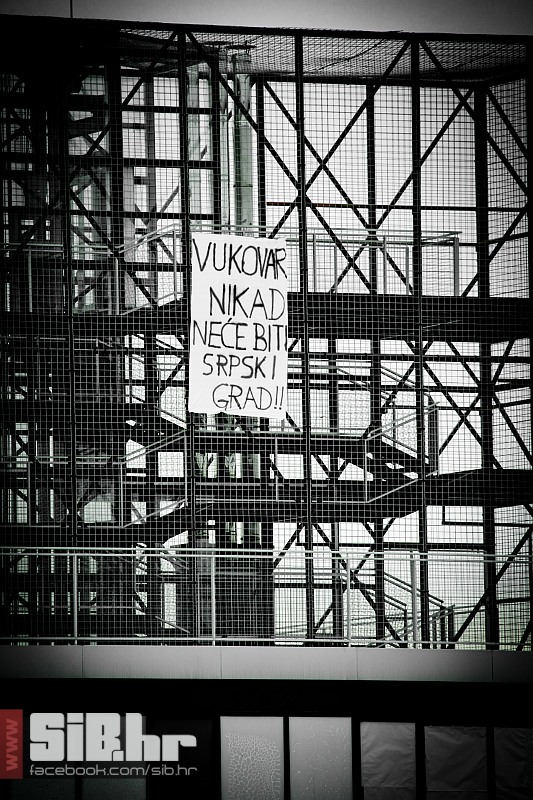 VUKOVAR
NIKAD
NEĆE BITI
SRPSKI
GRAD!!
www
SiB.hr
facebook.com/sib.hr